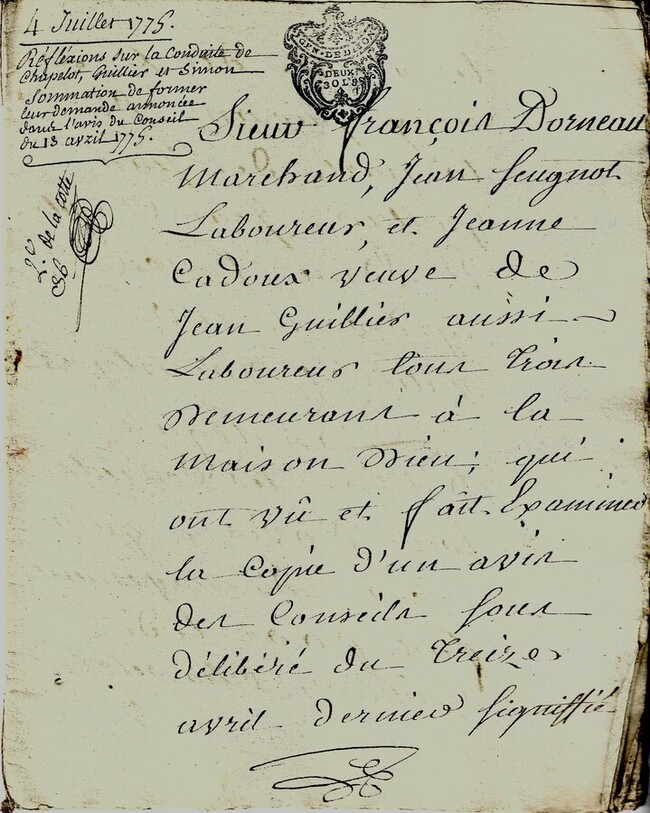 4 Juillet 1775.
Réfléxions sur la Conduite de
Chapelot, Guillier et Simon
Sommation de former
leur demande annoncée
dans l'avis du Conseil
du 13 avril 1775.
GEN. DE DIJON
DEUX
SOLS
2e. de la cotte
Sieur françois Dorneau
Marchand, Jean Seugnot
Laboureur, et Jeanne
Cadoux veuve de
Jean Guillier aussi
Laboureur tous trois
Demeurant à la
Maison Dieu; qui
ont vû et fait Examiner
la Copie d'un avis
des Conseils sous
délibéré du treize
avril dernier signiffié